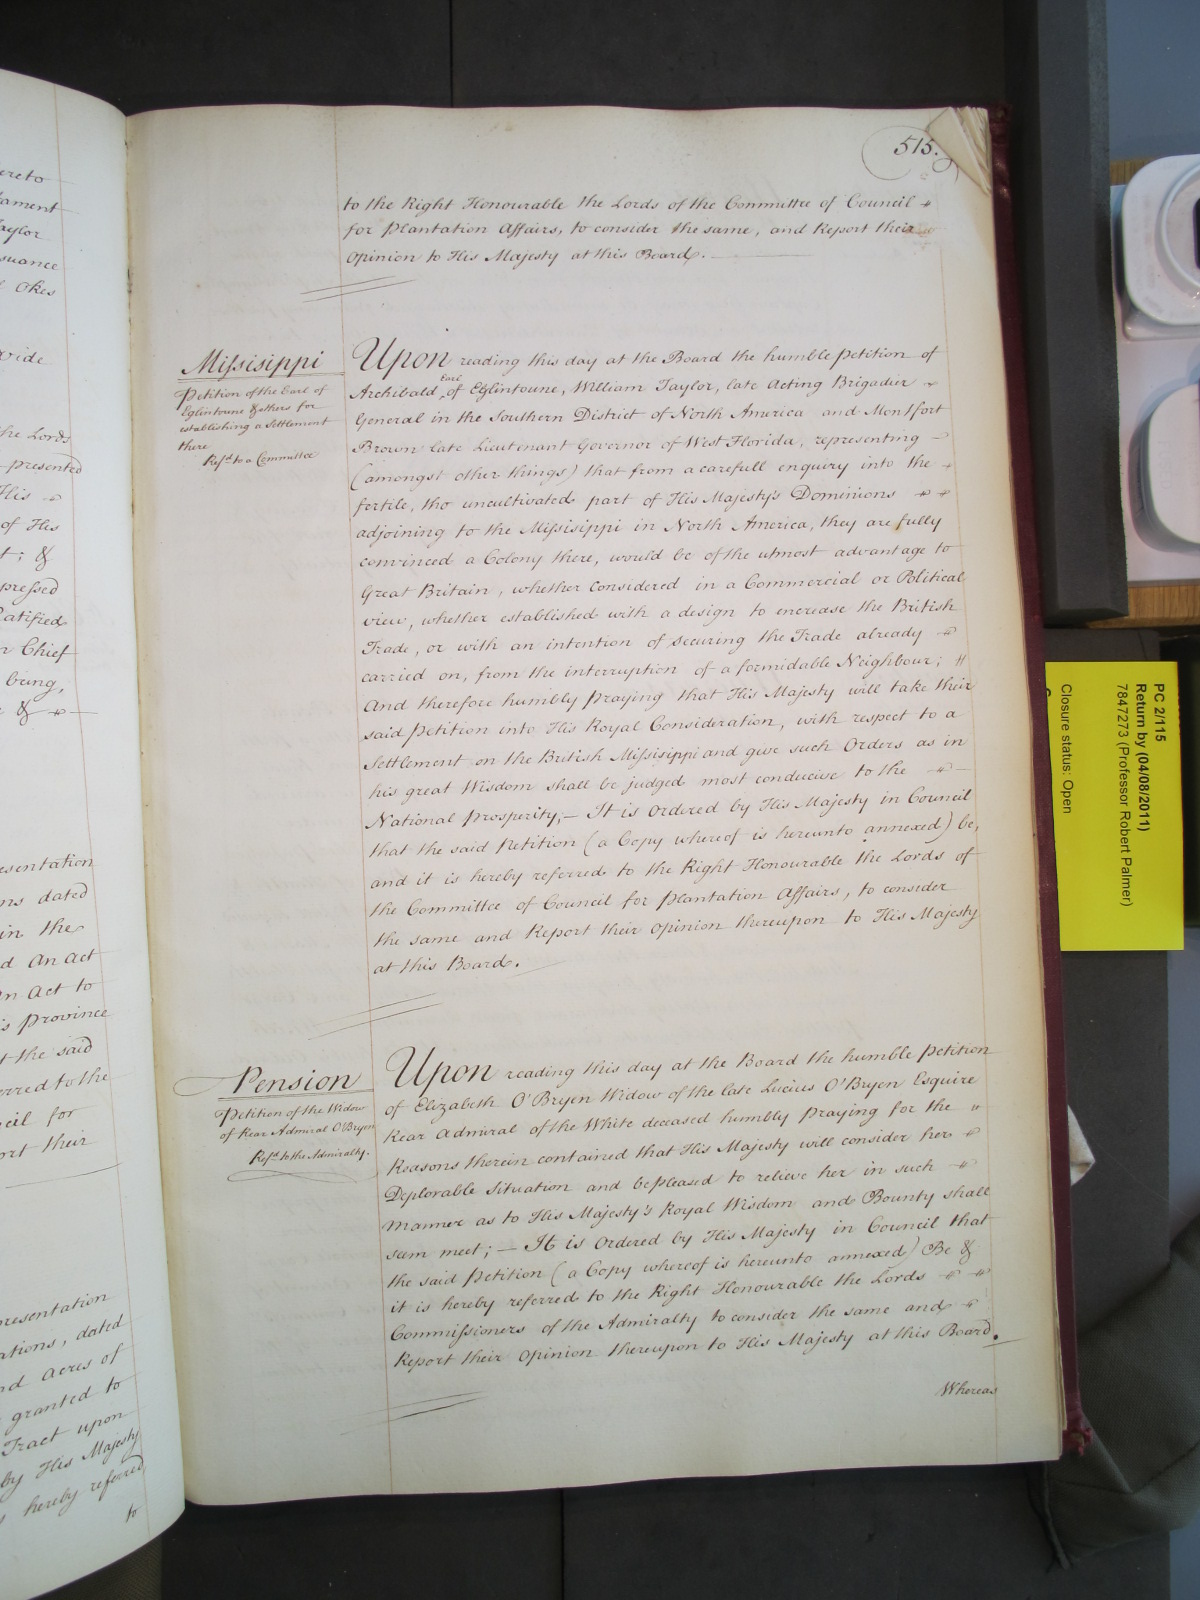 ereto
ament
aylor
suance
Okes
vide
the Lords
presented
His
of His
t; &
pressed
Ratified
n Chief
being,
&
esentation
ns dated
in the
d An Act
n Act to
is Province
t the said
erred to the
cil for
ort their
resentation
ations, dated
nd Acres of
granted to
Tract upon
by His Majesty
hereby referred
to
515.
to the Right Honourable the Lords of the Committee of Council
for Plantation Affairs, to consider the same, and Report their
Opinion to His Majesty at this Board.
Missisippi
Petition of the Earl of
Eglintoune & others for
establishing a Settlement
there
Refd. to a Committee
Upon reading this day at the Board the humble Petition of
Archibald Earl of Eglintoune, William Taylor, late Acting Brigadier
General in the Southern District of North America and Montfort
Brown late Lieutenant Governor of West Florida, representing
(amongst other things) that from a carefull enquiry into the
fertile, tho uncultivated part of His Majesty's Dominions
adjoining to the Missisippi in North America, they are fully
convinced a Colony there, would be of the utmost advantage to
Great Britain, whether Considered in a Commercial or Political
view, whether established with a design to encrease the British
Trade, or with an intention of securing the Trade already
carried on, from the interruption of a formidable Neighbour;
And therefore humbly praying that His Majesty will take their
said Petition into His Royal Consideration, with respect to a
Settlement on the British Missisippi and give such Orders as in
his great Wisdom shall be judged most conducive to the
National Prosperity;— It is Ordered by His Majesty in Council
that the said Petition (a Copy whereof is hereunto annexed) be,
and it is hereby referred to the Right Honourable the Lords of
the Committee of Council for Plantation Affairs, to consider
the same and Report their Opinion thereupon to His Majesty
at this Board.
Pension
Petition of the Widow
of Rear Admiral O'Bryen
Refd. to the Admiralty.
Upon reading this day at the Board the humble Petition
of Elizabeth O'Bryen Widow of the late Lucius O'Bryen Esquire
Rear Admiral of the White deceased humbly Praying for the
Reasons therein contained that His Majesty will consider her
Deplorable Situation and be pleased to relieve her in such
Manner as to His Majesty's Royal Wisdom and Bounty shall
seem meet;— It is Ordered by His Majesty in Council that
the said Petition (a Copy whereof is hereunto annexed) Be &
it is hereby referred to the Right Honourable the Lords
Commissioners of the Admiralty to consider the same and
Report their Opinion thereupon to His Majesty at this Board.
Whereas
PC 2/115
Return by (04/08/2011)
7847273 (Professor Robert Palmer)
Closure status: Open